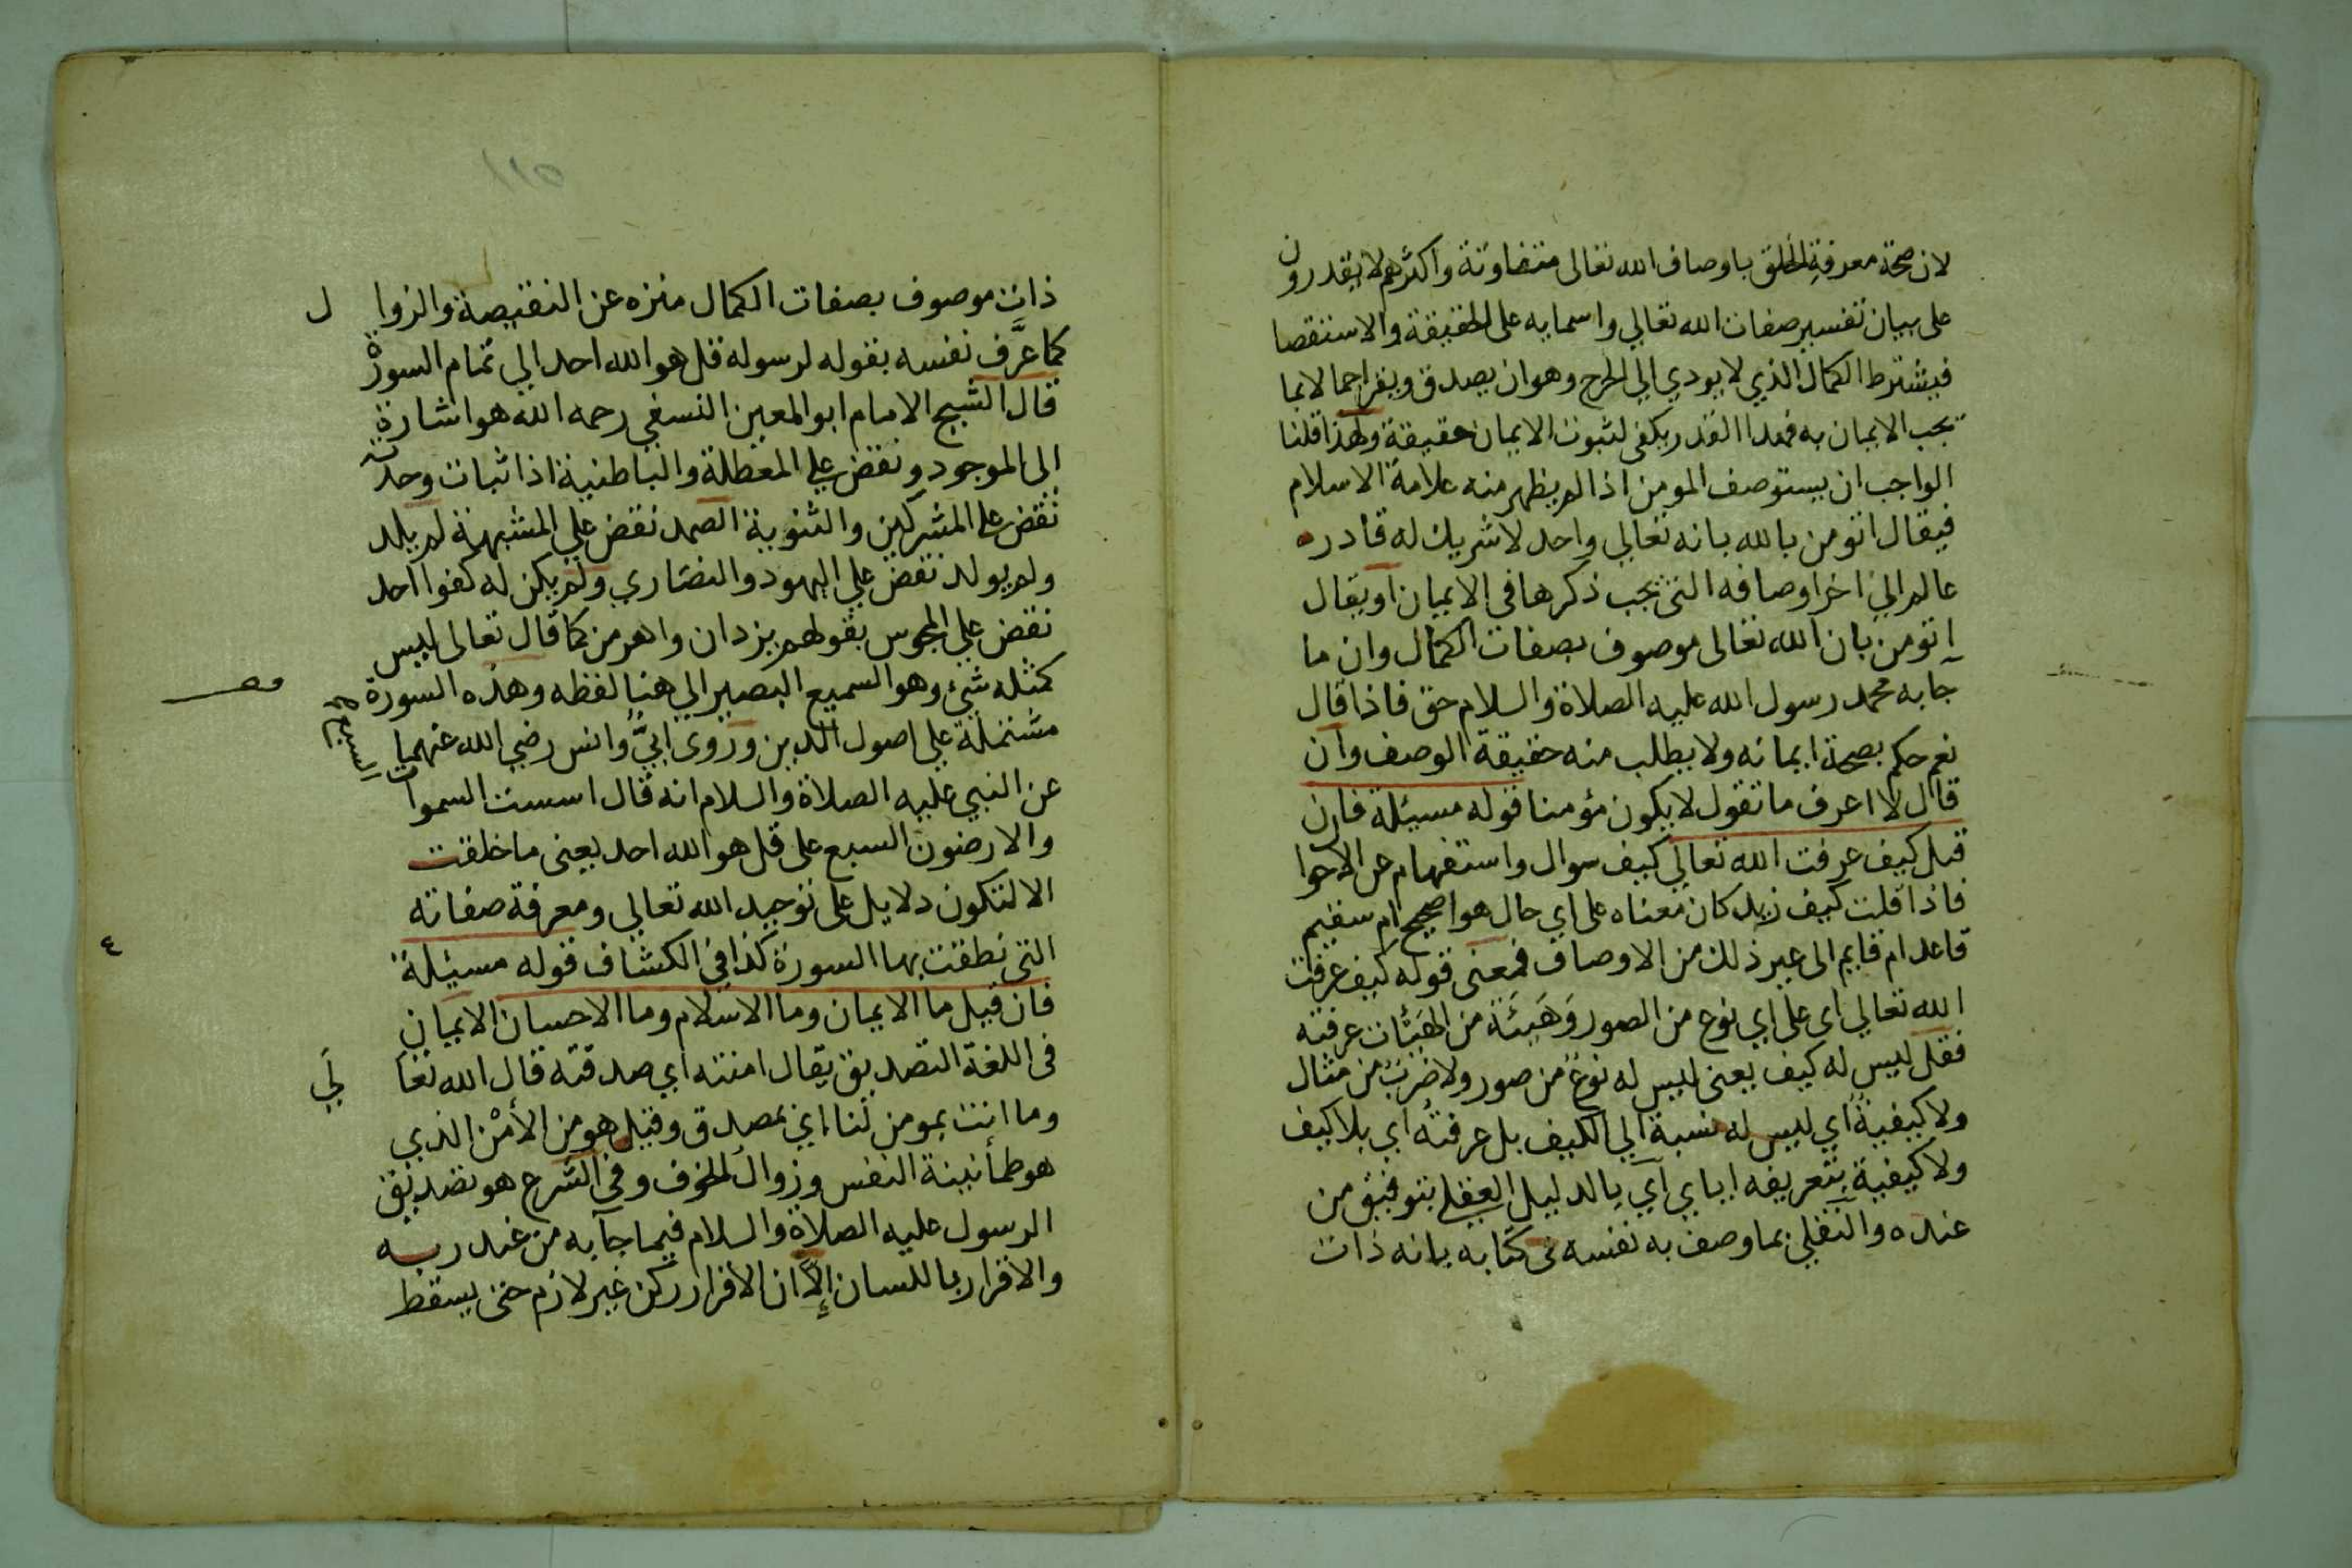 لان صحة معرفة الخلق باوصاف الله تعالى متفاوتة واكثرهم لا يقدرون
على بيان تفسير صفات الله تعالي واسمايه على الحقيقة والاستقصا
فيشترط الكمال الذي لا يودي الي الحرج وهو ان يصدق ويقر اجمالا بما
يجب الايمان به فهذا القدر يكفى لثبوت الايمان حقيقة ولهذا قلنا
الواجب ان يستوصف المومن اذا لم يظهر منه علامة الاسلام
فيقال اتومن بالله بانه تعالي واحد لا شريك له قادر
عالم الي اخر اوصافه التى يجب ذكرها فى الايمان او يقال
اتومن بان الله تعالى موصوف بصفات الكمال وان ما
جآ به محمد رسول الله عليه الصلاة والسلام حق فاذا قال
نعم حكم بصحة ايمانه ولا يطلب منه حقيقة الوصف وان
قال لا اعرف ما تقول لا يكون مؤمنا قوله مسيئلة فان
قيل كيف عرفت الله تعالي كيف سوال واستفهام عن الاحوا
فاذا قلت كيف زيد كان معناه على اي حال هو اصحيح ام سقيم
قاعد ام قايم الى غير ذلك من الاوصاف فمعنى قوله كيف عرفت
الله تعالي اى على اي نوع من الصور وَهَيئَة من الهَيئات عرفته
فقل ليس له كيف يعنى ليس له نوعٌ من صور ولا ضربٌ من مثال
ولا كيفية أي ليس له نسبة الي الكيف بل عرفتُه أي بلا كيف
ولا كيفية بتعريفه اياي آي بالدليل العقلي بتوفيق من
عنده والنقلي بما وصف به نفسه فى كتابه بانه ذات
١١٥
ذات موصوف بصفات الكمال منزه عن النقيصة والزوا ل
كما عرَّف نفسه بقوله لرسوله قل هو الله احد الي تمام السورة
قال الشيخ الامام ابو المعين النسفي رحمه الله هو اشارة
الى الموجود ونقض علي المعطلة والباطنية اذا ثبات وحدته
نقض على المشركين والثنوية الصمد نقض علي المشبهة لم يلد
ولم يولد نقض علي اليهود والنصاري ولم يكن له كفوا احد
نقض علي المجوس بقولهم يزدان واهرمن كما قال تعالى ليس
كمثله شئ وهو السميع البصير الي هنا لفظه وهذه السورة
مشتملة علي اصول الدين وروى ابيٌّ وانس رضي الله عنهما
عن النبي عليه الصلاة والسلام انه قال اسست السموات السبع
والارضون السبع على قل هو الله احد يعنى ما خلقت
الا لتكون دلايل على توحيد الله تعالي ومعرفة صفاته
التى نطقت بها السورة كذا في الكشاف قوله مسيئلة
٤
فان قيل ما الايمان وما الاسلام وما الاحسان الايمان
فى اللغة التصديق يقال امنته اي صدقته قال الله تعا لَي
وما انت بمومن لنا اي بمصدق وقيل هو من الأمْن الذي
هو طمأنينة النفس وزوال الخوف وفى الشرع هو تصديق
الرسول عليه الصلاة والسلام فيما جآ به من عند ربه
والاقرار باللسان إلاّ ان الاقرار ركن غير لازم حتى يسقط